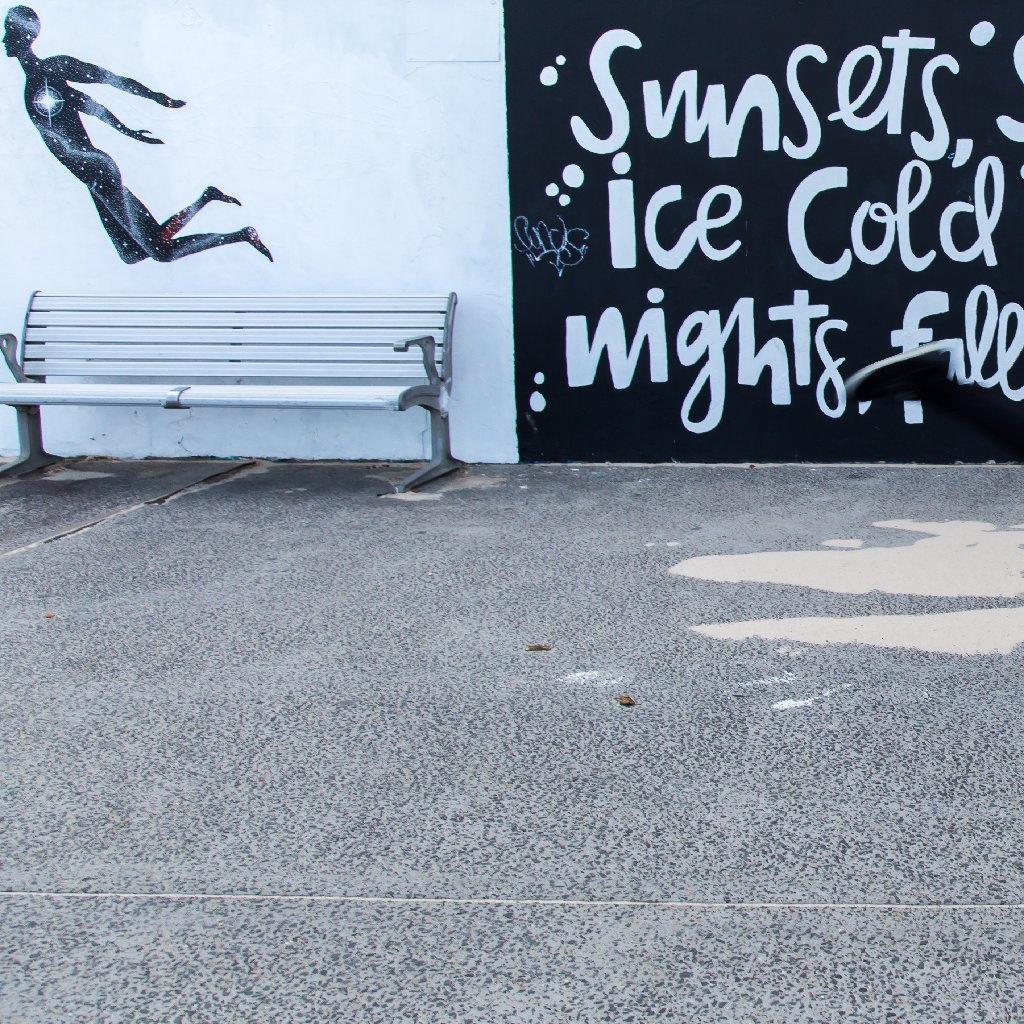 Sunsets,
ice Cold
nights,